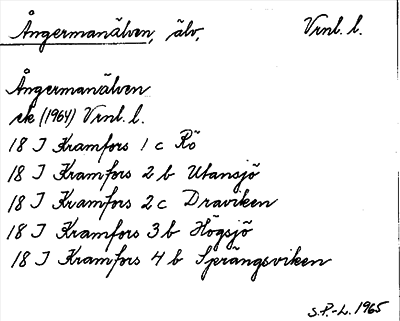 Ångermanälven, älv, Vrnl. l.
Ångermanälven
ek (1964) Vrnl. l.
18 J Kramfors 1 c Rö
18 J Kramfors 2 b Utansjö
18 J Kramfors 2 c Draviken
18 J Kramfors 3 b Högsjö
18 J Kramfors 4 b Sprängsviken
S.P.-L. 1965